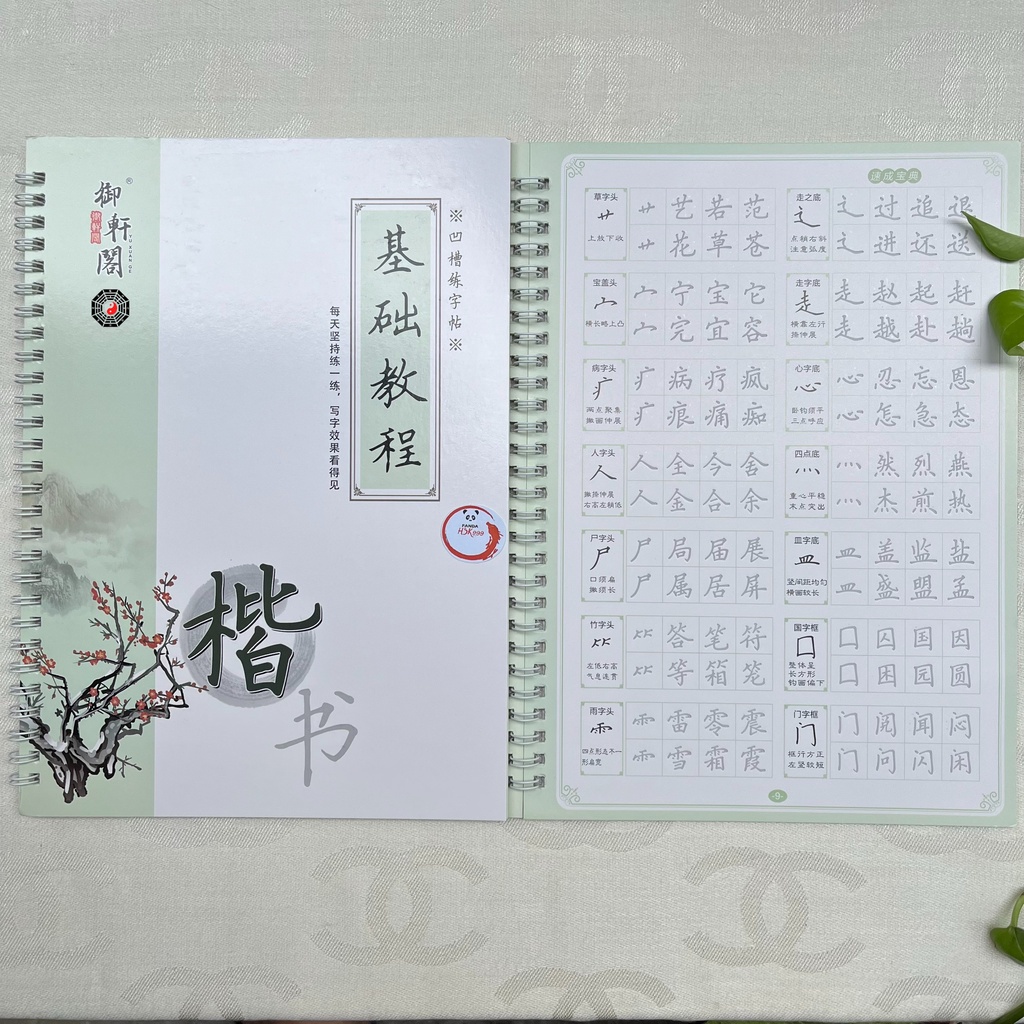 御軒閣
®
御軒閣
YU XUAN GE
※凹槽练字帖※
基础教程
每天坚持练一练，写字效果看得见
PANDA
HSK999
楷
书
速成宝典
草字头
艹
上放下收
艹艺若范
艹花草苍
宝盖头
宀
横长略上凸
宀宁宝它
宀完宜容
病字头
疒
两点聚集
撇画伸展
疒病疗疯
疒痕痛痴
人字头
人
撇捺伸展
右高左稍低
人全今舍
人金合余
尸字头
尸
口须扁
撇须长
尸局届展
尸属居屏
竹字头
⺮
左低右高
气息连贯
⺮答笔符
⺮等箱笼
雨字头
⻗
四点形态不一
形扁宽
⻗雷零震
⻗雪霜霞
走之底
辶
点稍右斜
注意弧度
辶过追退
辶进还送
走字底
走
横靠左行
捺伸展
走赵起赶
走越赴趟
心字底
心
卧钩须平
三点呼应
心忍忘恩
心怎急态
四点底
灬
重心平稳
末点突出
灬然烈燕
灬杰煎热
皿字底
皿
竖间距均匀
横画较长
皿盖监盐
皿盛盟孟
国字框
囗
整体呈
长方形
钩画偏下
囗囚国因
囗困园圆
门字框
门
框行方正
左竖较短
门阅闻闷
门问闪闲
-9-